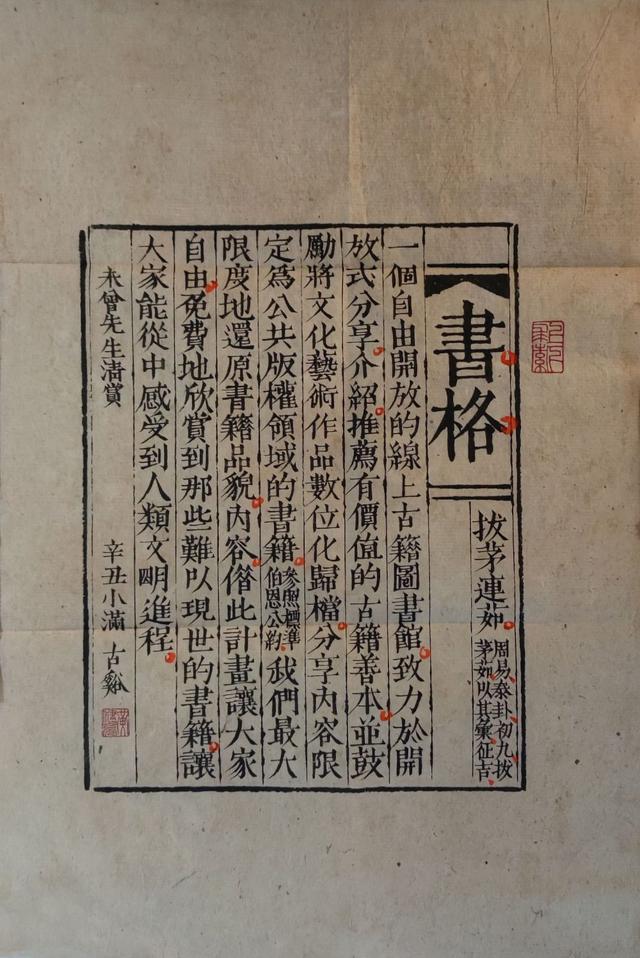 書格
拔茅連茹
周易泰卦初九拔
茅茹以其彙征吉
一個自由開放的線上古籍圖書館致力於開
放式分享介紹推薦有價值的古籍善本並鼓
勵將文化藝術作品數位化歸檔分享內容限
定為公共版權領域的書籍參照標準伯恩公約我們最大
限度地還原書籍品貌內容僣此計畫讓大家
自由免費地欣賞到那些難以現世的書籍讓
大家能從中感受到人類文明進程
未曾先生清賞
辛丑小滿 古谿